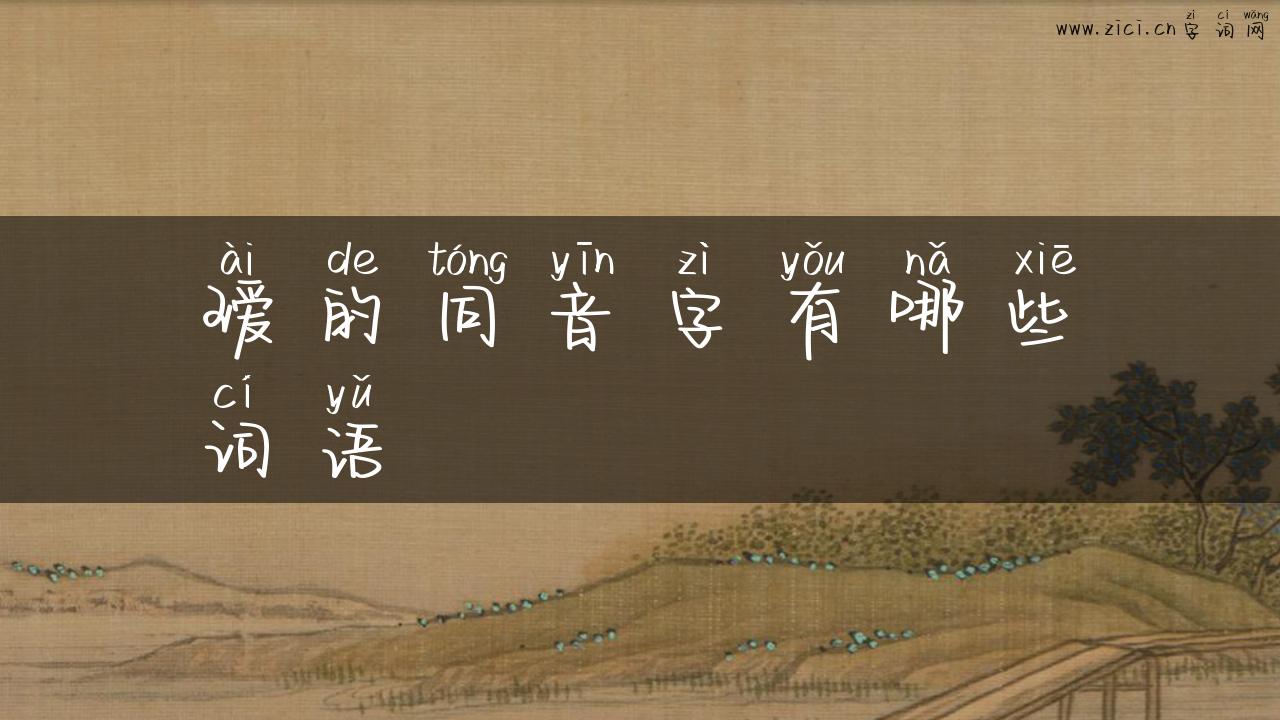 zì cí wǎng
www.zici.cn字词网
ài de tóng yīn zì yǒu nǎ xiē
瑷的同音字有哪些
cí yǔ
词语